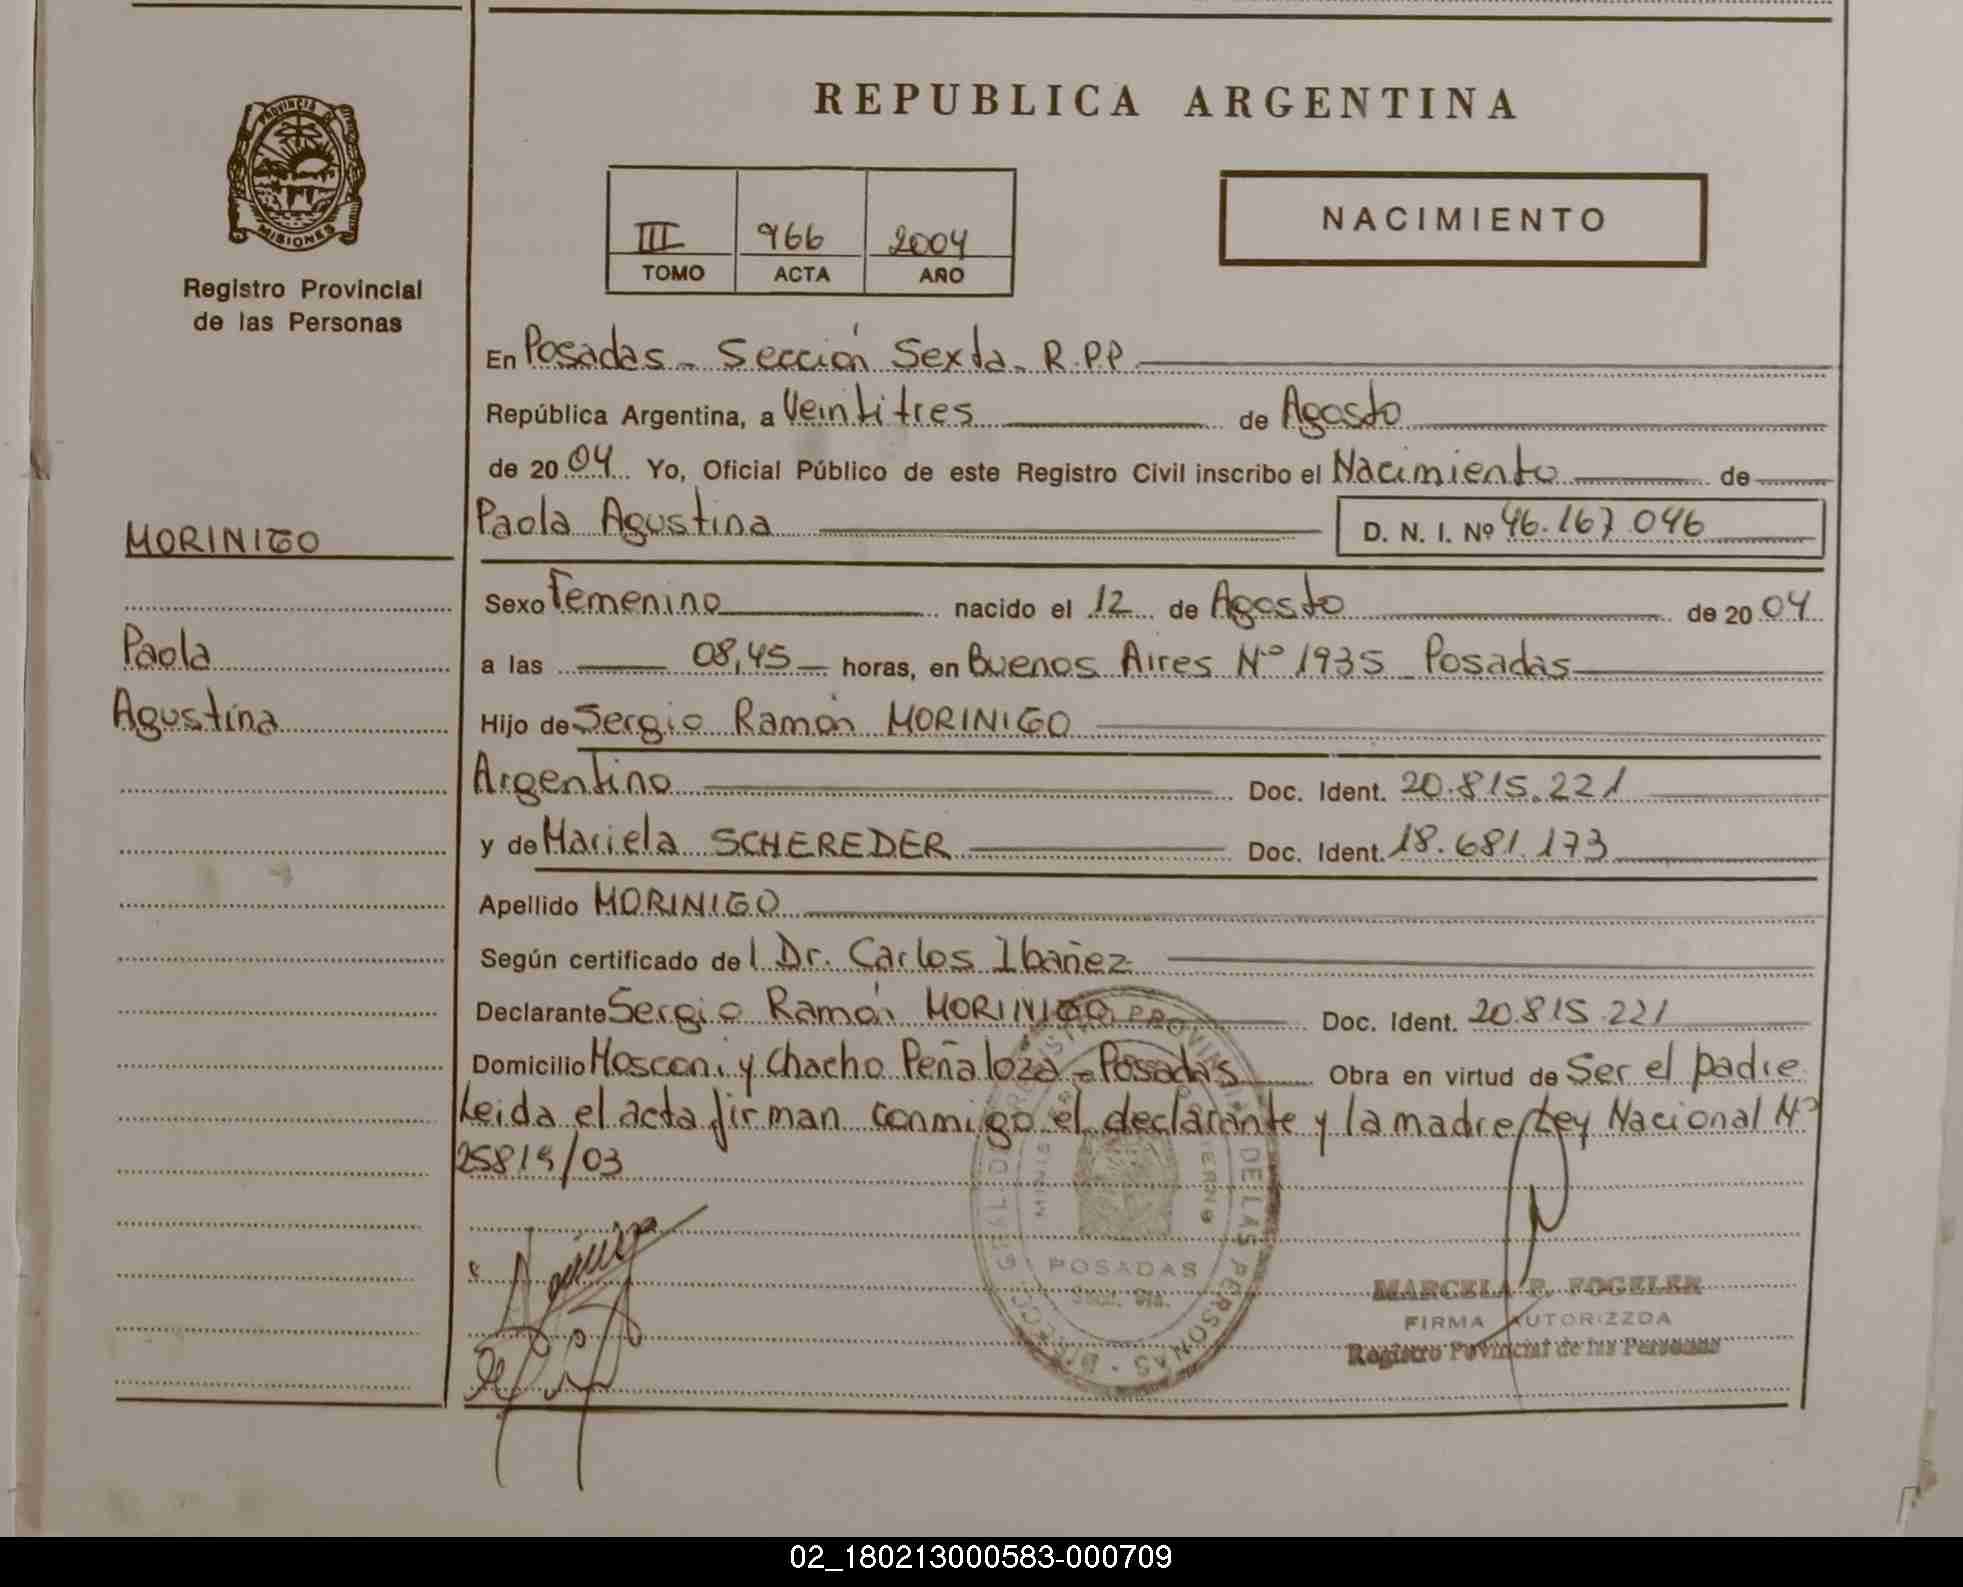 REPUBLICA ARGENTINA
PROVINCIA DE
MISIONES
Registro Provincial
de las Personas
III 966 2004
TOMO ACTA AÑO
NACIMIENTO
En Posadas - Sección Sexta - R.P.P.
República Argentina, a Veintitres de Agosto
de 2004 Yo, Oficial Público de este Registro Civil inscribo el Nacimiento de
MORINIGO
Paola Agustina D. N. I. Nº 46.167.046
Sexo Femenino nacido el 12 de Agosto de 2004
Paola
a las 08,45 horas, en Buenos Aires Nº 1935 - Posadas
Agustina
Hijo de Sergio Ramón MORINIGO
Argentino Doc. Ident. 20.815.221
y de Mariela SCHEREDER Doc. Ident. 18.681.173
Apellido MORINIGO
Según certificado del Dr. Carlos Ibañez
Declarante Sergio Ramón MORINIGO Doc. Ident. 20.815.221
Domicilio Mosconi y Chacho Peñaloza - Posadas Obra en virtud de Ser el padre
Leida el acta firman conmigo el declarante y la madre/Ley Nacional Nº
25819/03
POSADAS
MARCELA F. FOGELER
FIRMA AUTORIZZDA
Registro Povincial de las Personas
02_180213000583-000709